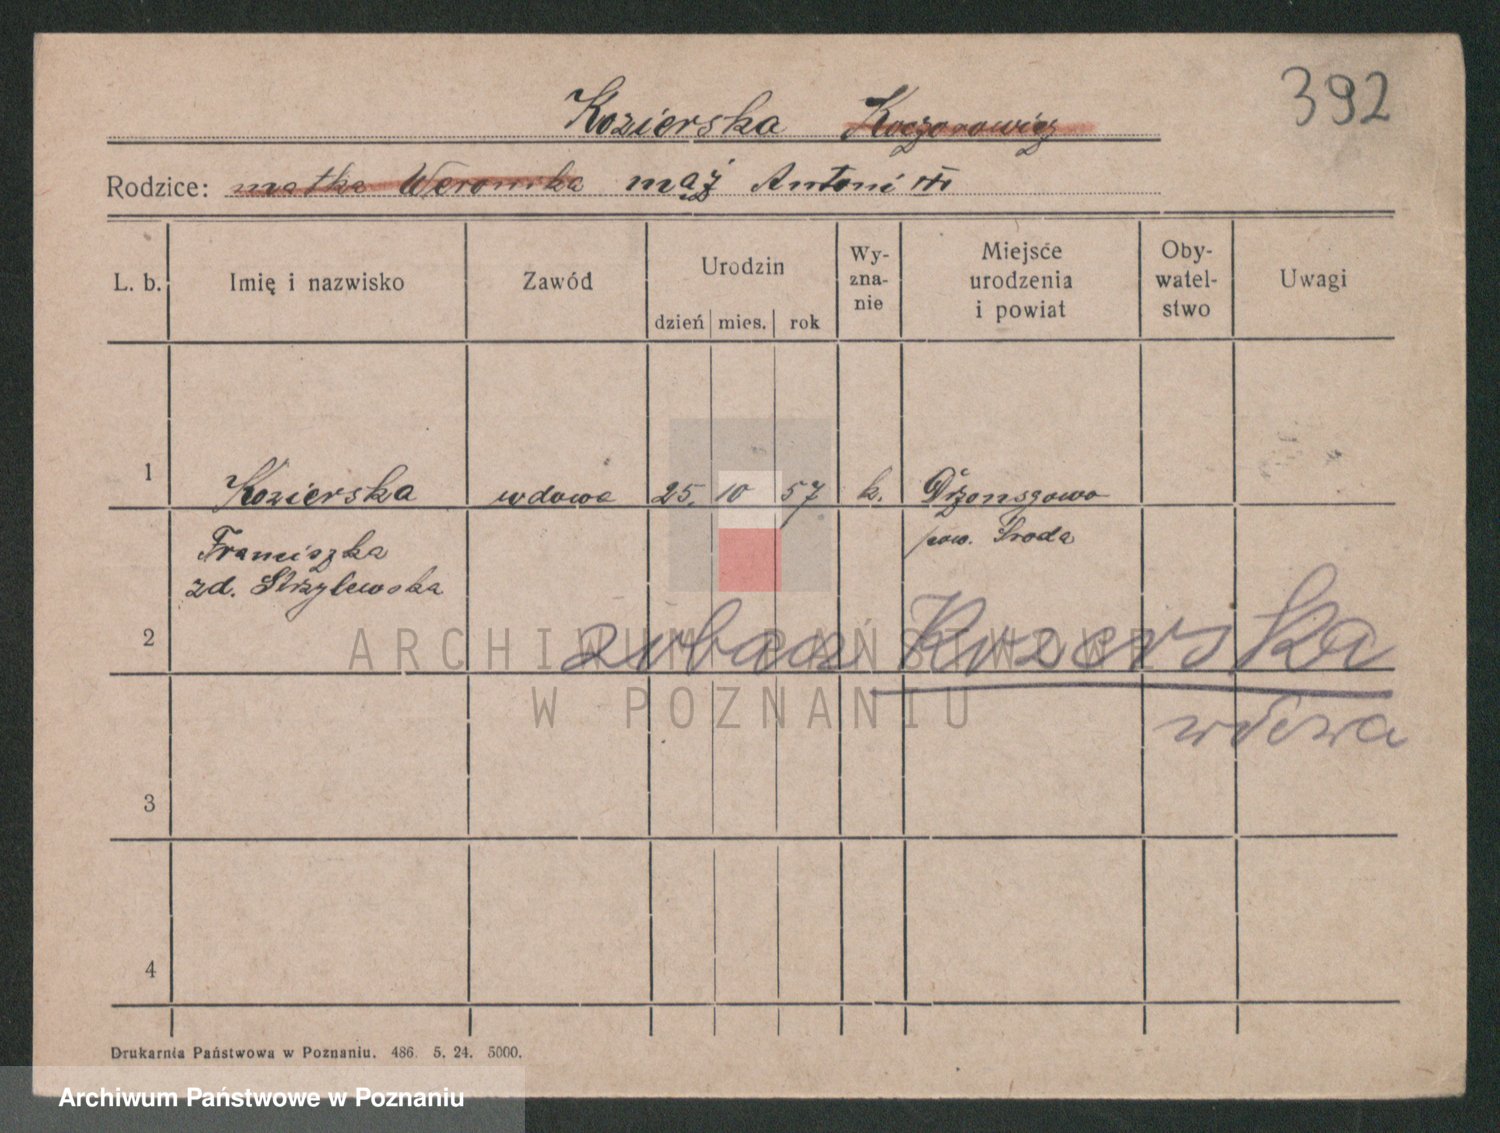 392
Kozierska Koczorowicz
Rodzice: matka Weronika mąż Antoni
L. b. Imię i nazwisko Zawód Urodzin dzień mies. rok Wy- zna- nie Miejsce urodzenia i powiat Oby- watel- stwo Uwagi
1 Kozierska wdowa 25. 10 57 k. Dżonsgowo
Franciszka pow. Środa
zd. Strzylewska
2 zobacz Kozerska
wdowa
3
4
Drukarnia Państwowa w Poznaniu. 486. 5. 24. 5000.
ARCHIWUM PAŃSTWOWE
W POZNANIU
Archiwum Państwowe w Poznaniu